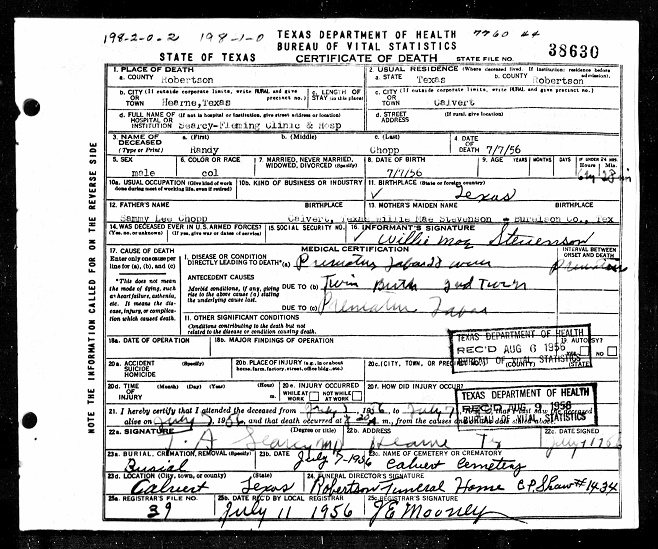 198-2-0.2 198-1-0 7760 44
TEXAS DEPARTMENT OF HEALTH
BUREAU OF VITAL STATISTICS
STATE OF TEXAS CERTIFICATE OF DEATH STATE FILE NO. 38630
1. PLACE OF DEATH 2. USUAL RESIDENCE (Where deceased lived. If institution: residence before admission).
a. COUNTY Robertson a. STATE Texas b. COUNTY Robertson
b. CITY (If outside corporate limits, write RURAL and give precinct no.) c. LENGTH OF STAY (in this place) c. CITY (If outside corporate limits, write RURAL and give precinct no.)
OR TOWN Hearne, Texas OR TOWN Calvert
d. FULL NAME OF (If not in hospital or institution, give street address or location) d. STREET ADDRESS (If rural, give location)
HOSPITAL OR INSTITUTION Searcy-Fleming Clinic & Hosp
3. NAME OF DECEASED a. (First) b. (Middle) c. (Last) 4. DATE OF DEATH 7/7/56
(Type or Print) Randy Chopp
5. SEX 6. COLOR OR RACE 7. MARRIED, NEVER MARRIED, WIDOWED, DIVORCED (Specify) 8. DATE OF BIRTH 9. AGE YEARS MONTHS DAYS IF UNDER 24 HRS. Hours Min.
male col 7/7/56
10a. USUAL OCCUPATION (Give kind of work done during most of working life, even if retired) 10b. KIND OF BUSINESS OR INDUSTRY 11. BIRTHPLACE (State or foreign country)
Texas
12. FATHER'S NAME BIRTHPLACE 13. MOTHER'S MAIDEN NAME BIRTHPLACE
Sammy Lee Chopp Calvert, Texas Willie Mae Stevenson Burleson Co., Tex
14. WAS DECEASED EVER IN U.S. ARMED FORCES? 15. SOCIAL SECURITY NO. 16. INFORMANT'S SIGNATURE
(Yes, no, or unknown) (If yes, give war or dates of service) Willie Mae Stevenson
17. CAUSE OF DEATH MEDICAL CERTIFICATION INTERVAL BETWEEN ONSET AND DEATH
Enter only one cause per line for (a), (b), and (c)
I. DISEASE OR CONDITION DIRECTLY LEADING TO DEATH* (a)
*This does not mean the mode of dying, such as heart failure, asthenia, etc. It means the disease, injury, or complication which caused death.
ANTECEDENT CAUSES
Morbid conditions, if any, giving rise to the above cause (a) stating the underlying cause last.
DUE TO (b) Twin Birth 2nd Twin
DUE TO (c)
II. OTHER SIGNIFICANT CONDITIONS
Conditions contributing to the death but not related to the disease or condition causing death.
18a. DATE OF OPERATION 18b. MAJOR FINDINGS OF OPERATION 19. AUTOPSY? YES NO
TEXAS DEPARTMENT OF HEALTH
REC'D AUG 6 1956
BUREAU OF VITAL STATISTICS
20a. ACCIDENT SUICIDE HOMICIDE 20b. PLACE OF INJURY (e.g., in or about home, farm, factory, street, office bldg., etc.) 20c. (CITY, TOWN, OR PRECINCT NO.) (COUNTY) (STATE)
20d. TIME OF INJURY (Month) (Day) (Year) (Hour) m. 20e. INJURY OCCURRED WHILE AT WORK NOT WHILE AT WORK 20f. HOW DID INJURY OCCUR?
TEXAS DEPARTMENT OF HEALTH
REC'D AUG 9 1956
BUREAU OF VITAL STATISTICS
21. I hereby certify that I attended the deceased from July 7, 1956, to July 7
alive on July 7, 1956, and that death occurred at m., from the causes and on the date stated above.
22a. SIGNATURE (Degree or title) 22b. ADDRESS 22c. DATE SIGNED
Searcy MD Hearne Tx July 7 1956
23a. BURIAL, CREMATION, REMOVAL (Specify) 23b. DATE 23c. NAME OF CEMETERY OR CREMATORY
Burial July 7-1956 Calvert Cemetery
23d. LOCATION (City, town, or county) (State) 24. FUNERAL DIRECTOR'S SIGNATURE
Calvert Texas Robertson Funeral Home C.P. Shaw #1434
25a. REGISTRAR'S FILE NO. 25b. DATE REC'D BY LOCAL REGISTRAR 25c. REGISTRAR'S SIGNATURE
39 July 11 1956 J E Mooney
NOTE THE INFORMATION CALLED FOR ON THE REVERSE SIDE